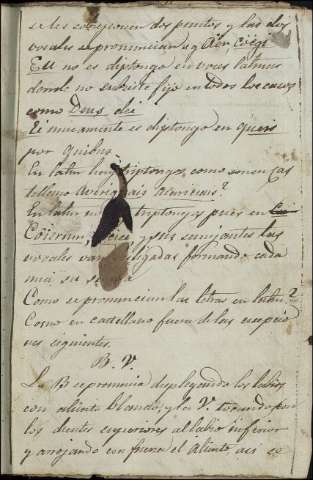 se les sobreponen dos puntos y las dos
vocales se pronuncian v.g. Aër, Coëgi
Eu no es diptongo en voces latinas
donde no subsiste fijo en todos los casos
como Deus, dei
Ei unicamente es diptongo en queis
por quibus
En latin hay triptongos, como son en Cas
tellano Averiguais, acariciais?
En latin no triptongos pues en
Cojerunt, y sus semejantes las
vocales van ligadas formando cada
una su
Como se pronuncian las letras en latin?
Como en castellano fuera de las excepcio
nes siguientes.
B. V.
La B se pronuncia desplegando los labios
con aliento blando; y la V. tocando con
los dientes superiores al labio inferior
y arrojando con fuerza el aliento, asi es